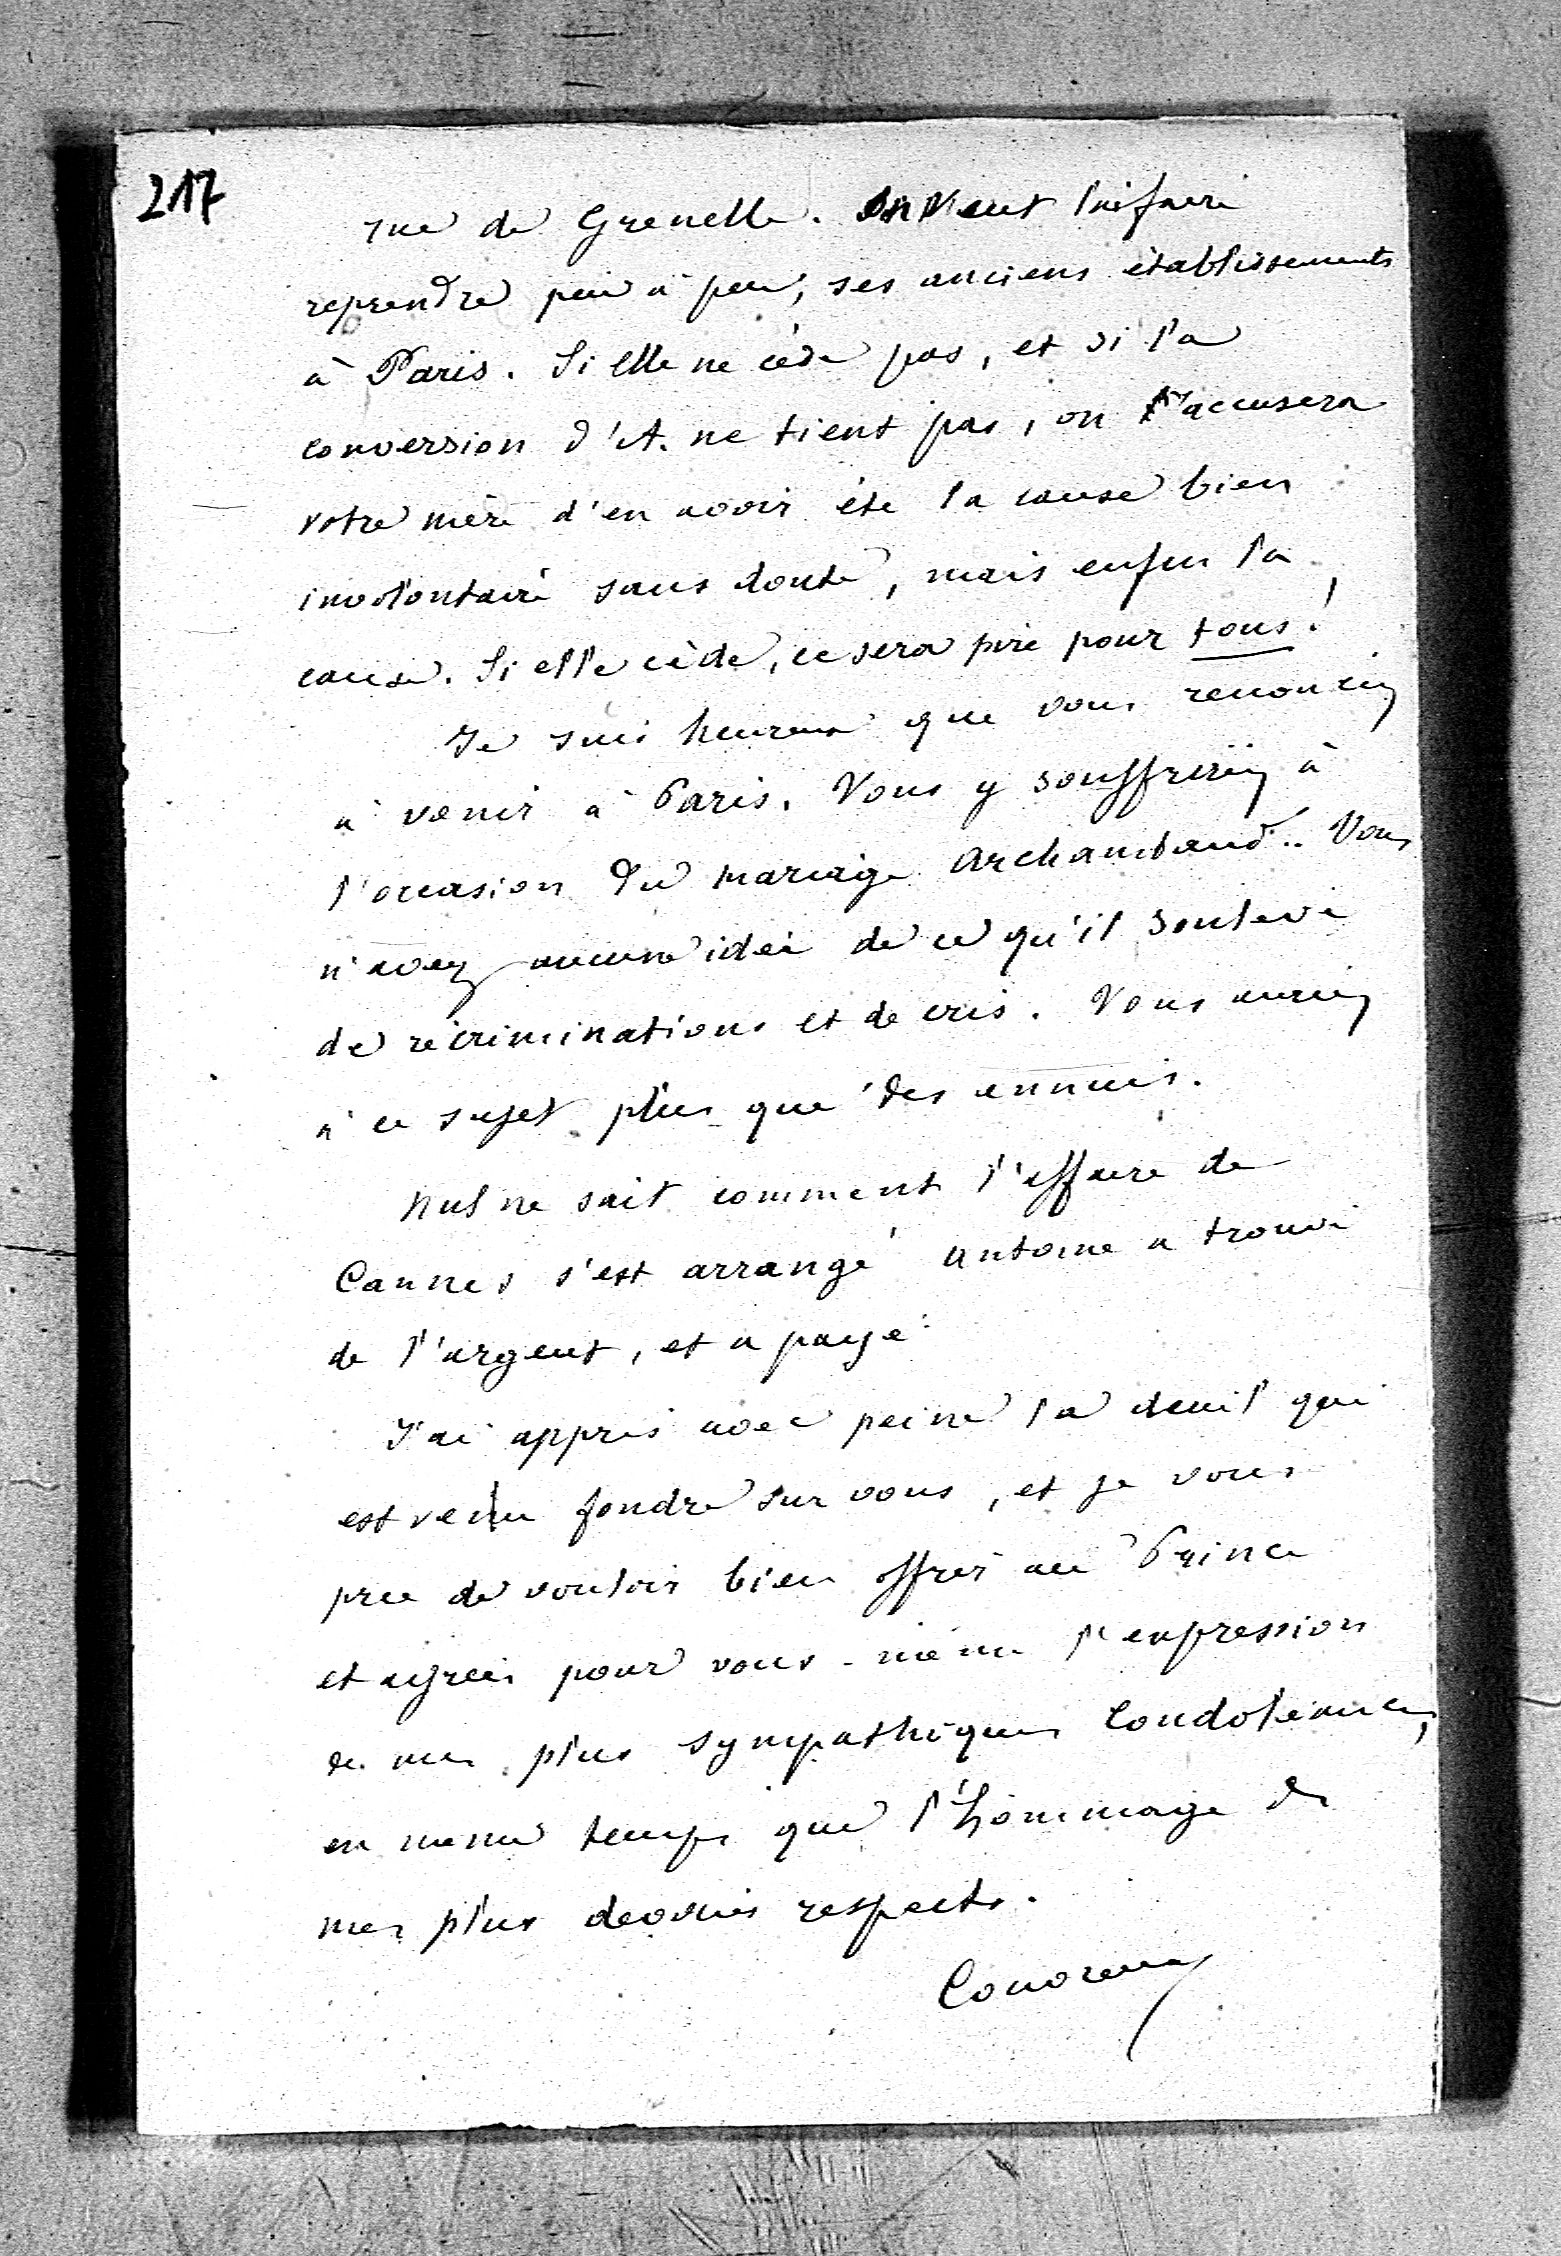 217
rue de Grenelle. On veut lui faire
reprendre peu à peu, ses anciens établissements
à Paris. Si elle ne cède pas, et si la
conversion d'A. ne tient pas, on accusera
votre mère d'en avoir été la cause bien
involontaire sans doute, mais enfin la
cause. Si elle cède, ce sera pire pour tous!
Je suis heureux que vous renonciez
à venir à Paris. Vous y souffririez à
l'occasion du mariage Archambaud.. Vous
n'avez aucune idée de ce qu'il soulève
de récriminations et de cris. Vous auriez
à ce sujet plus que des ennuis.
Nul ne sait comment l'affaire de
Cannes s'est arrangé Antoine a trouvé
de l'argent, et a payé
J'ai appris avec peine le deuil qui
est venu fondre sur vous, et je vous
prie de vouloir bien offrir au Prince
et agréer pour vous-même l'expression
de mes plus sympathiques condoléances,
en même temps que l'hommage de
mes plus dévoués respects.